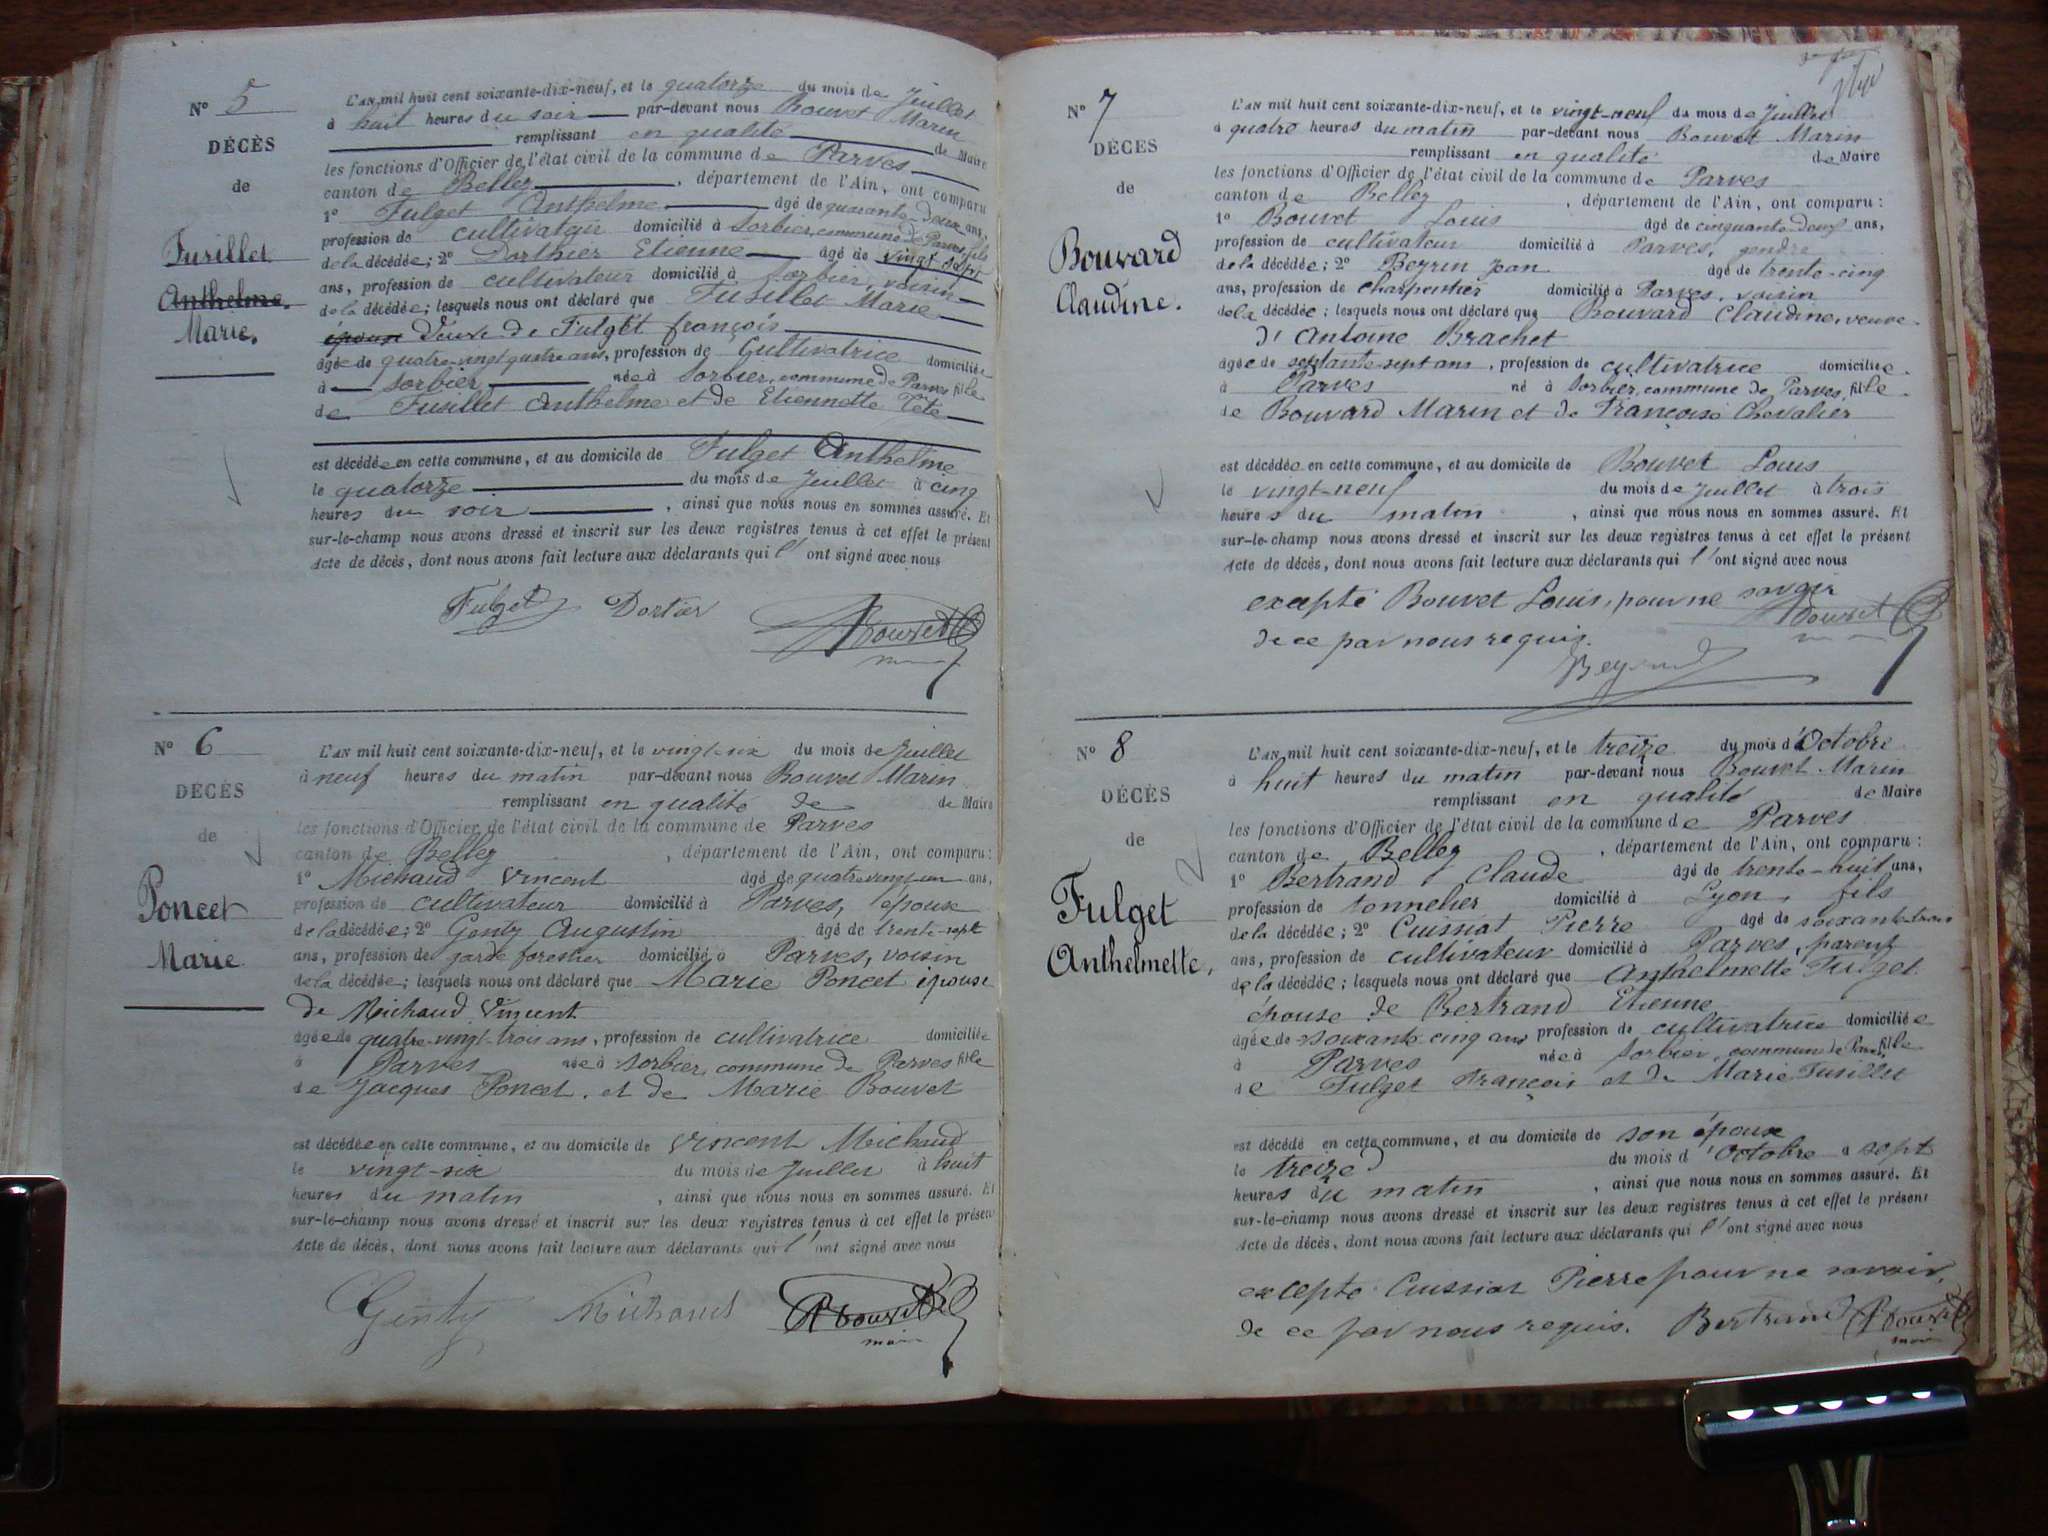 N° 5
DÉCÈS
de
Fusillet
Anthelme.
Marie.
L'AN mil huit cent soixante-dix-neuf, et le quatorze du mois de Juillet
à huit heures du soir par-devant nous Bouvet Marin
remplissant en qualité de Maire
les fonctions d'Officier de l'état civil de la commune de Parves
canton de Belley, département de l'Ain, ont comparu
1° Fulget Anthelme âgé de quarante-deux ans,
profession de cultivateur domicilié à Sorbier, commune de Parves, fils
de la décédée; 2° Dorthier Etienne âgé de vingt-sept
ans, profession de cultivateur domicilié à Sorbier, voisin
de la décédée; lesquels nous ont déclaré que Fusillet Marie
épouse Veuve de Fulget françois
âgée de quatre-vingt quatre ans, profession de Cultivatrice domiciliée
à Sorbier née à Sorbier, commune de Parves fille
de Fusillet Anthelme et de Etiennette Tête
est décédée en cette commune, et au domicile de Fulget Anthelme
le quatorze du mois de Juillet à cinq
heures du soir, ainsi que nous nous en sommes assuré. Et
sur-le-champ nous avons dressé et inscrit sur les deux registres tenus à cet effet le présent
Acte de décès, dont nous avons fait lecture aux déclarants qui l'ont signé avec nous
Fulget Dortier Bouvet
N° 6
DÉCÈS
de
Poncet
Marie
L'AN mil huit cent soixante-dix-neuf, et le vingt-six du mois de Juillet
à neuf heures du matin par-devant nous Bouvet Marin
remplissant en qualité de de Maire
les fonctions d'Officier de l'état civil de la commune de Parves
canton de Belley, département de l'Ain, ont comparu:
1° Michaud Vincent âgé de quatre vingt un ans,
profession de cultivateur domicilié à Parves, époux
de la décédée; 2° Genty Augustin âgé de trente-sept
ans, profession de garde forestier domicilié à Parves, voisin
de la décédée; lesquels nous ont déclaré que Marie Poncet épouse
de Michaud Vincent
âgée de quatre-vingt-trois ans, profession de cultivatrice domiciliée
à Parves née à Sorbier, commune de Parves fille
de Jacques Poncet. et de Marie Bouvet
est décédée en cette commune, et au domicile de Vincent Michaud
le vingt-six du mois de Juillet à huit
heures du matin, ainsi que nous nous en sommes assuré. Et
sur-le-champ nous avons dressé et inscrit sur les deux registres tenus à cet effet le présent
Acte de décès, dont nous avons fait lecture aux déclarants qui l'ont signé avec nous
Genty Michaud Bouvet
maire
N° 7
DÉCÈS
de
Bouvard
Claudine.
L'AN mil huit cent soixante-dix-neuf, et le vingt-neuf du mois de Juillet
à quatre heures du matin par-devant nous Bouvet Marin
remplissant en qualité de Maire
les fonctions d'Officier de l'état civil de la commune de Parves
canton de Belley, département de l'Ain, ont comparu:
1° Bouvet Louis âgé de cinquante-deux ans,
profession de cultivateur domicilié à Parves, gendre
de la décédée; 2° Beyrin Jean âgé de trente-cinq
ans, profession de charpentier domicilié à Parves, voisin
de la décédée; lesquels nous ont déclaré que Bouvard Claudine, veuve
d'Antoine Brachet
âgée de septante-sept ans, profession de cultivatrice domiciliée
à Parves né à Sorbier, commune de Parves, fille
de Bouvard Marin et de Françoise Chevalier
est décédée en cette commune, et au domicile de Bouvet Louis
le vingt-neuf du mois de Juillet à trois
heures du matin, ainsi que nous nous en sommes assuré. Et
sur-le-champ nous avons dressé et inscrit sur les deux registres tenus à cet effet le présent
Acte de décès, dont nous avons fait lecture aux déclarants qui l'ont signé avec nous
excepté Bouvet Louis, pour ne savoir
de ce par nous requis. Bouvet
N° 8
DÉCÈS
de
Fulget
Anthelmette,
L'AN mil huit cent soixante-dix-neuf, et le treize du mois d'Octobre
à huit heures du matin par-devant nous Bouvet Marin
remplissant en qualité de Maire
les fonctions d'Officier de l'état civil de la commune de Parves
canton de Belley, département de l'Ain, ont comparu:
1° Bertrand Claude âgé de trente-huit ans,
profession de tonnelier domicilié à Lyon, fils
de la décédée; 2° Cuissiat Pierre âgé de soixante-trois
ans, profession de cultivateur domicilié à Parves, parent
de la décédée; lesquels nous ont déclaré que Anthelmette Fulget
épouse de Bertrand Etienne
âgée de soixante cinq ans profession de cultivatrice domiciliée
à Parves née à Sorbier, commune de Parves, fille
de Fulget François et de Marie Fusillet
est décédé en cette commune, et au domicile de son époux
le treize du mois d'Octobre à sept
heures du matin, ainsi que nous nous en sommes assuré. Et
sur-le-champ nous avons dressé et inscrit sur les deux registres tenus à cet effet le présent
Acte de décès, dont nous avons fait lecture aux déclarants qui l'ont signé avec nous
excepté Cuissiat Pierre pour ne savoir,
de ce par nous requis. Bertrand Bouvet
maire